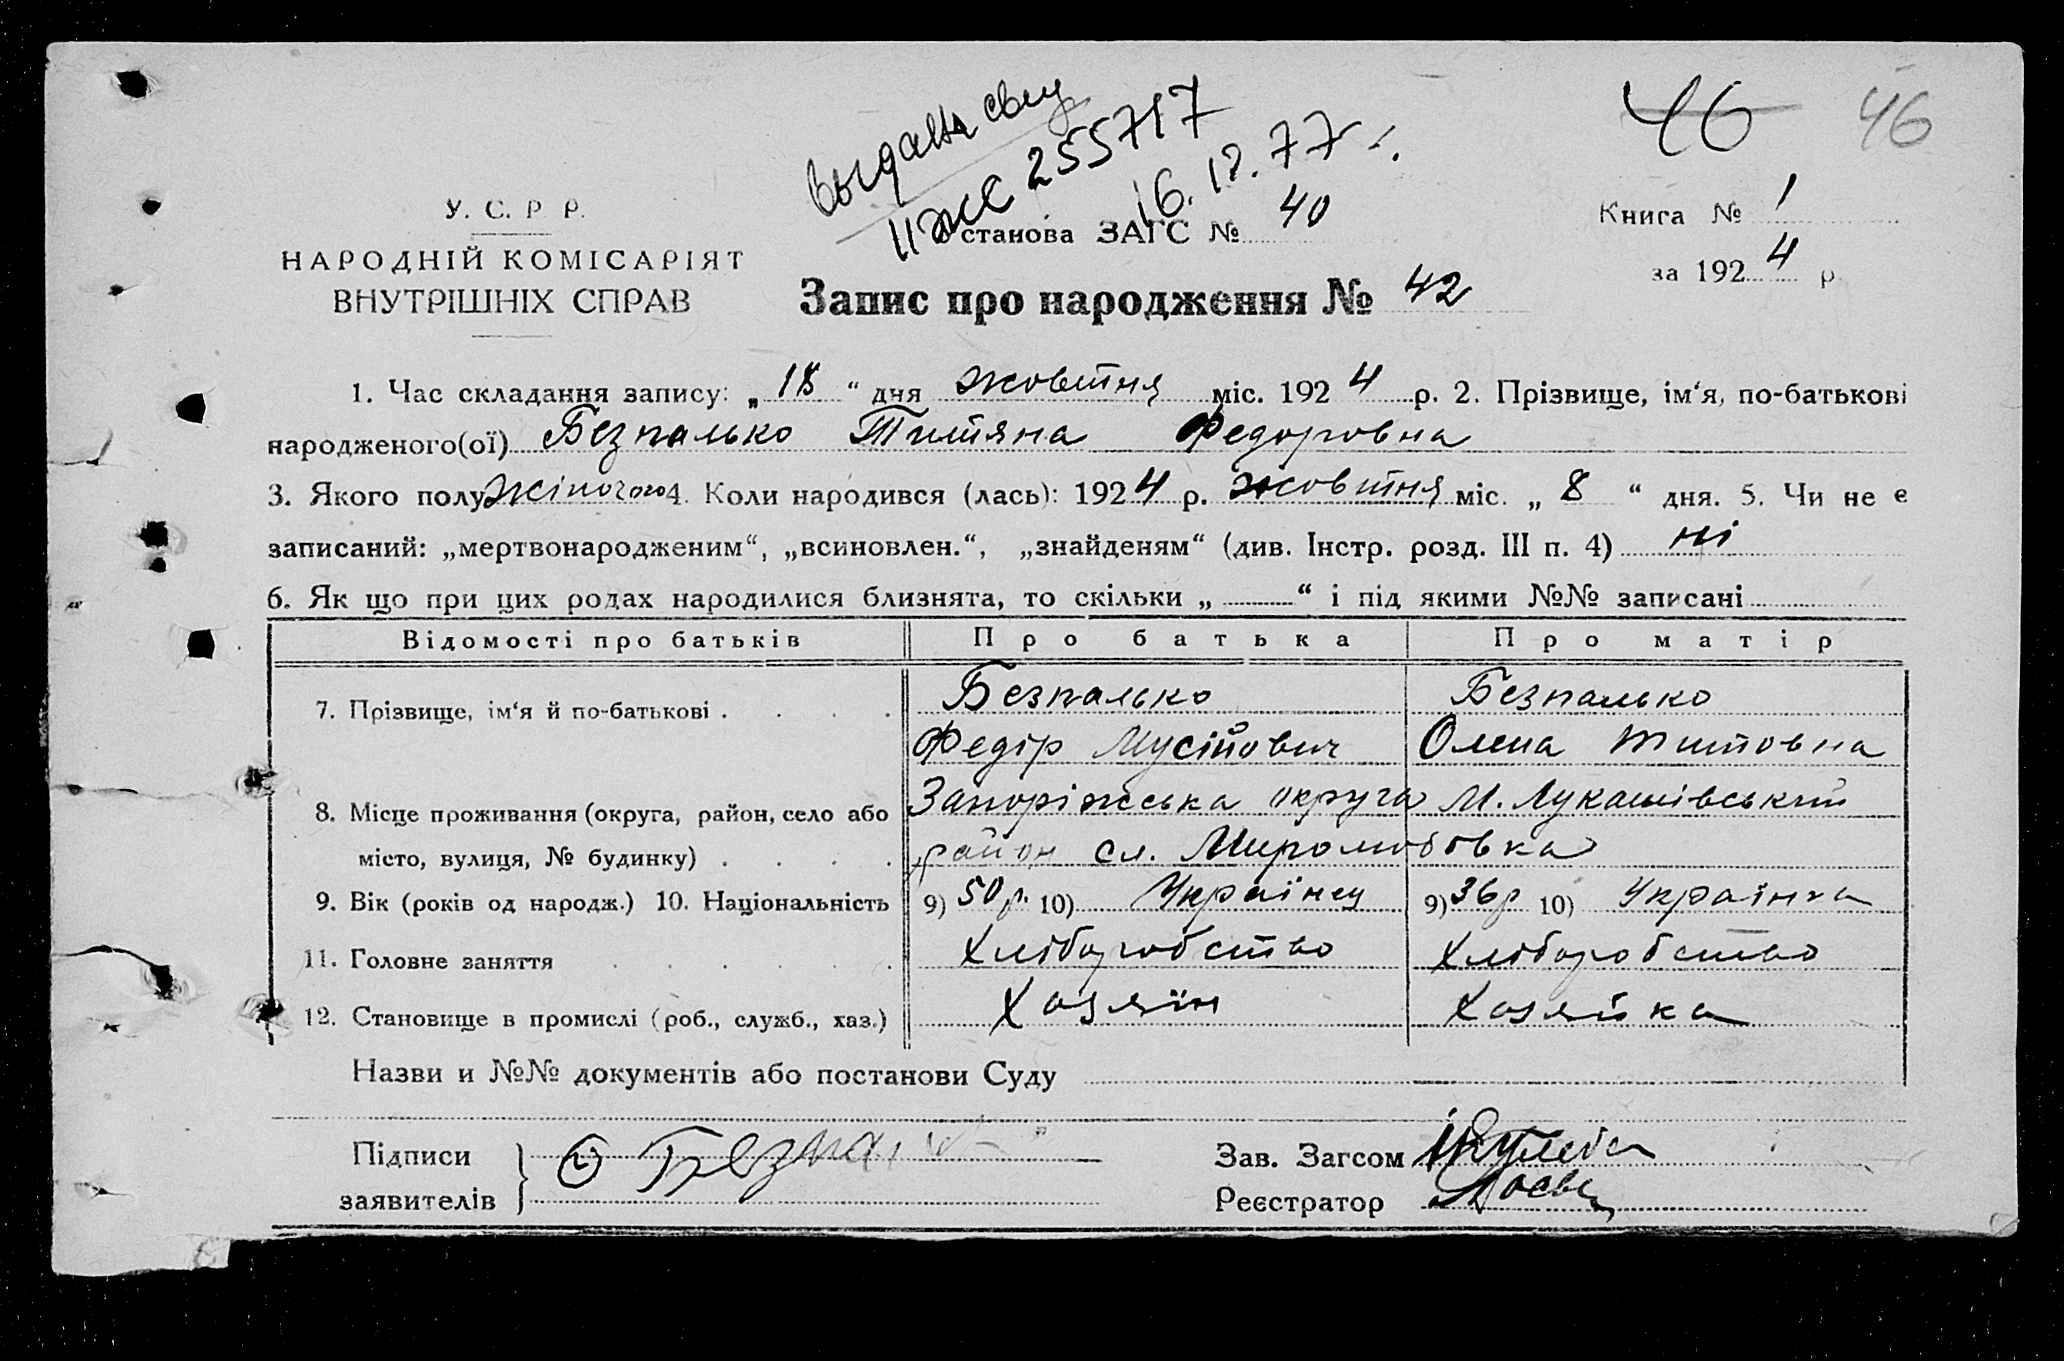 46 46
выдана свид
II ЖС 255717
16.12.77 г.
У. С. Р. Р.
НАРОДНІЙ КОМІСАРІЯТ
ВНУТРІШНІХ СПРАВ
станова ЗАГС № 40
Книга № 1
за 1924 р
Запис про народження № 42
1. Час складання запису: „ 18 “ дня жовтня міс. 1924 р. 2. Прізвище, ім‘я, по-батькові
народженого(ої) Безпалько Титяна Федоровна
3. Якого полу жіночого 4. Коли народився (лась): 1924 р. жовтня міс. „ 8 “ дня. 5. Чи не є
записаний: „мертвонародженим“, „всиновлен.“, „знайденям“ (див. Інстр. розд. III п. 4) ні
6. Як що при цих родах народилися близнята, то скільки „ “ і під якими №№ записані
Відомості про батьків Про батька Про матір
7. Прізвище, ім‘я й по-батькові . . . . Безпалько Безпалько
Федір Мусійович Олена Титовна
8. Місце проживання (округа, район, село або Запоріжська округа М. Лукашівський
місто, вулиця, № будинку) . . . . район сл. Миролюбовка
9. Вік (років од народж.) 10. Національність 9) 50 р. 10) Українец 9) 36 р 10) Українка
11. Головне заняття . . . . . . Хліборобство Хліборобство
12. Становище в промислі (роб., служб., хаз.) Хазяїн Хазяйка
Назви и №№ документів або постанови Суду
Підписи
заявителів
Зав. Загсом
Реєстратор